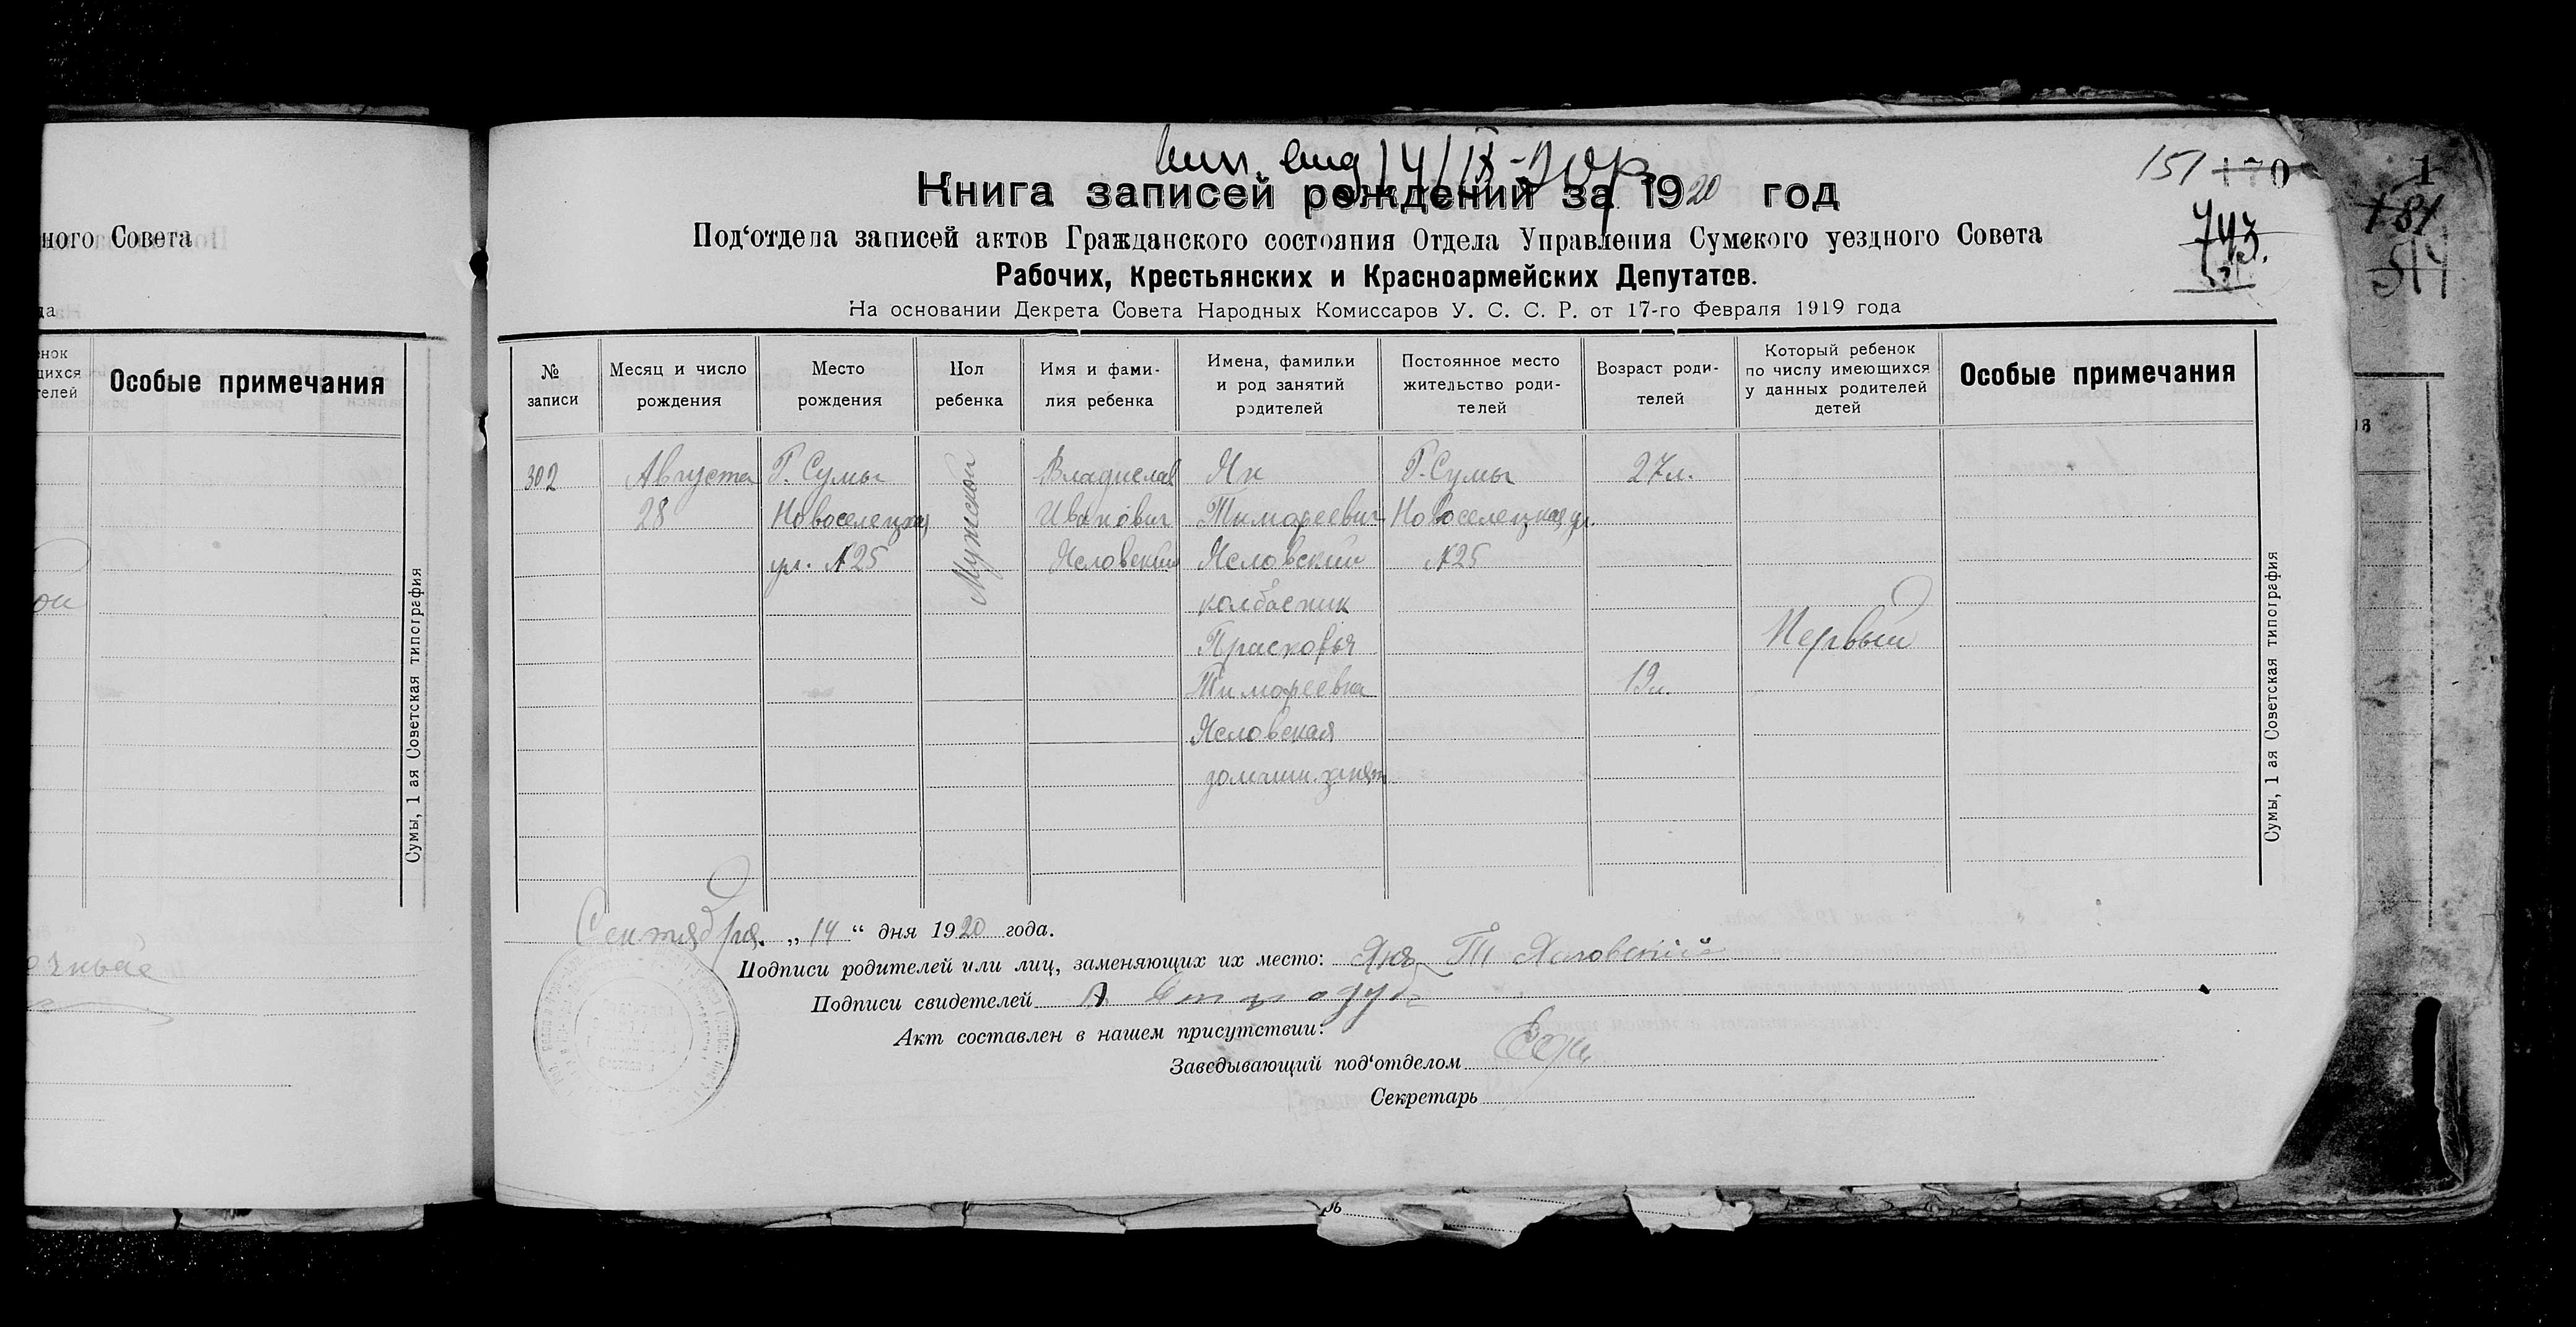 ного Совета
да
енок
щихся
телей
Особые примечания
ои
Сумы, 1 ая Советская типография
151 170
743.
1
181
514
Книга записей рождений за 1920 год
Под‘отдела записей актов Гражданского состояния Отдела Управления Сумского уездного Совета
Рабочих, Крестьянских и Красноармейских Депутатов.
На основании Декрета Совета Народных Комиссаров У. С. С. Р. от 17-го Февраля 1919 года
№
записи
Месяц и число
рождения
Место
рождения
Пол
ребенка
Имя и фами-
лия ребенка
Имена, фамилии
и род занятий
родителей
Постоянное место
жительство роди-
телей
Возраст роди-
телей
Который ребенок
по числу имеющихся
у данных родителей
детей
Особые примечания
302
Августа
28
Г. Сумы
Новоселецкая
ул. №25
Мужской
Владислав
Иванович
Ясловский
Ян
Тимофеевич
Ясловский
колбасник
Прасковья
Тимофеевна
Ясловская
домашн. занят
Г. Сумы
Новоселецкая ул.
№25
27л.
19л.
Первый
Сумы, 1 ая Советская типография
Сентября. „14“ дня 1920 года.
Подписи родителей или лиц, заменяющих их место: Ясловский
Подписи свидетелей А
Акт составлен в нашем присутствии:
Заведывающий под‘отделом
Секретарь